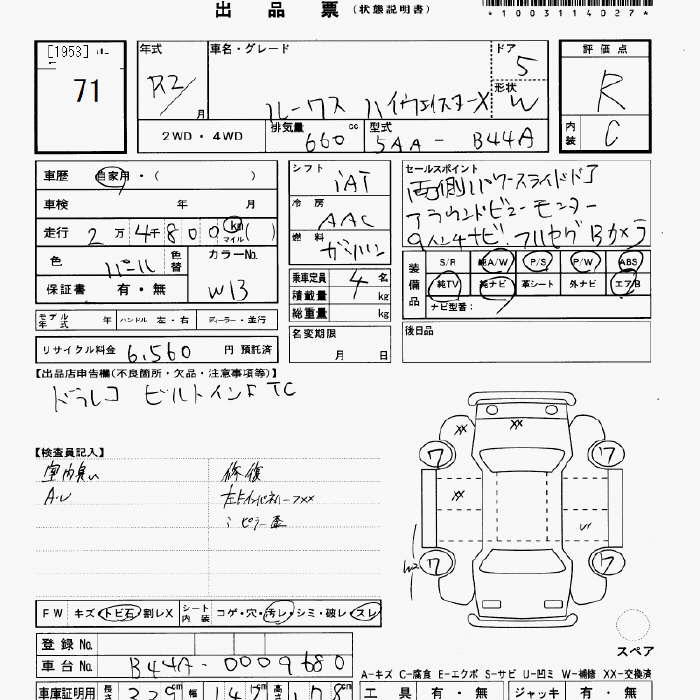 出 品 票 (状態説明書)
*1003114027*
[1953]
71
年式
R2/
月
車名・グレード
ルークス ハイウェイスターX
ドア
5
形状
W
評価点
R
内装
C
2WD・4WD
排気量
660
cc
型式
5AA- B44A
車歴 自家用・( )
車検 年 月
走行 2万4千800 km マイル ( )
色 パール 色替
カラーNo.
W13
保証書 有・無
モデル年式 年 ハンドル 左・右 ディーラー・並行
リサイクル料金 6,560 円 預託済
シフト
iAT
冷房
AAC
燃料
ガソリン
乗車定員 4 名
積載量 kg
総重量 kg
名変期限
月 日
セールスポイント
両側パワースライドドア
アラウンドビューモニター
9インチナビ.フルセグBカメラ
装備品
S/R 純A/W P/S P/W ABS
純TV 純ナビ 革シート 外ナビ エアB
ナビ型番:
後日品
【出品店申告欄(不良箇所・欠品・注意事項等)】
ドラレコ ビルトインETC
【検査員記入】
室内臭い
A.U
修復
左
ピラー
XX
XX
XX
ワ
ワ
ワ
ワ
スペア
FW キズ・トビ石・割レX
シート内装 コゲ・穴・汚レ・シミ・破レ・スレ
登録 No.
車台 No. B44A-0009680
A-キズ C-腐食 E-エクボ S-サビ U-凹ミ W-補修 XX-交換済
車庫証明用 長さ 339cm 幅 147cm 高さ 178cm
工具 有・無 ジャッキ 有・無